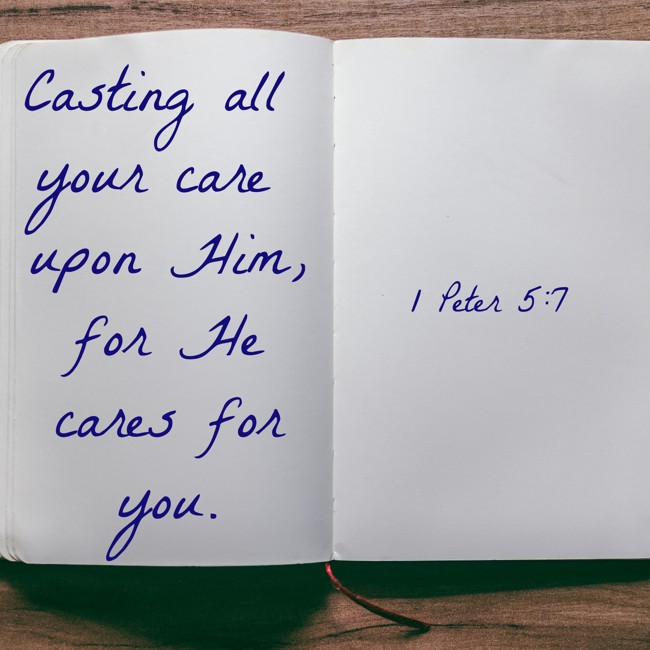 Casting all
your care
upon Him,
for He
cares for
you.
1 Peter 5:7